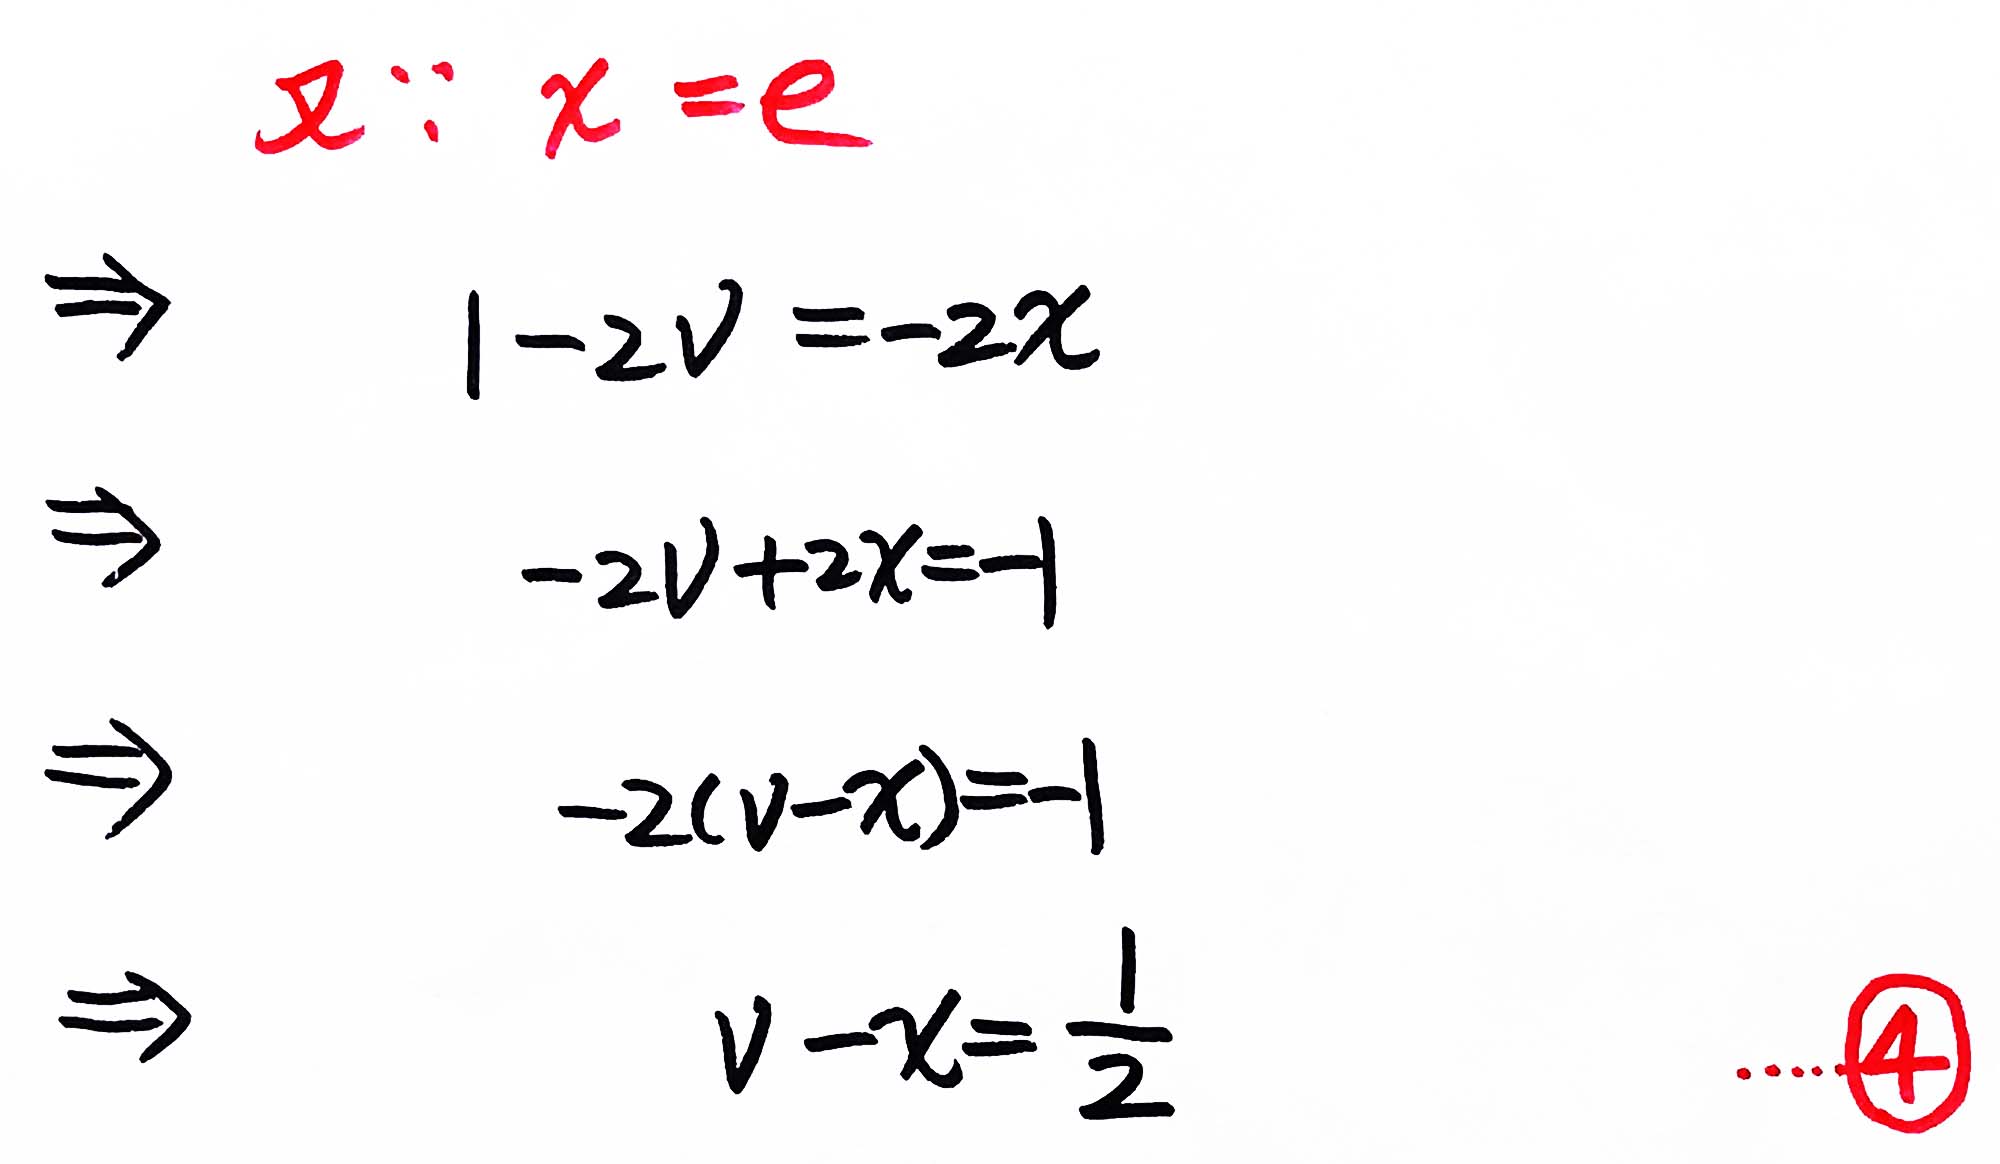 又∵ x = e
⇒ 1-2v = -2x
⇒ -2v+2x=-1
⇒ -2(v-x)=-1
⇒ v-x=1/2 ……④